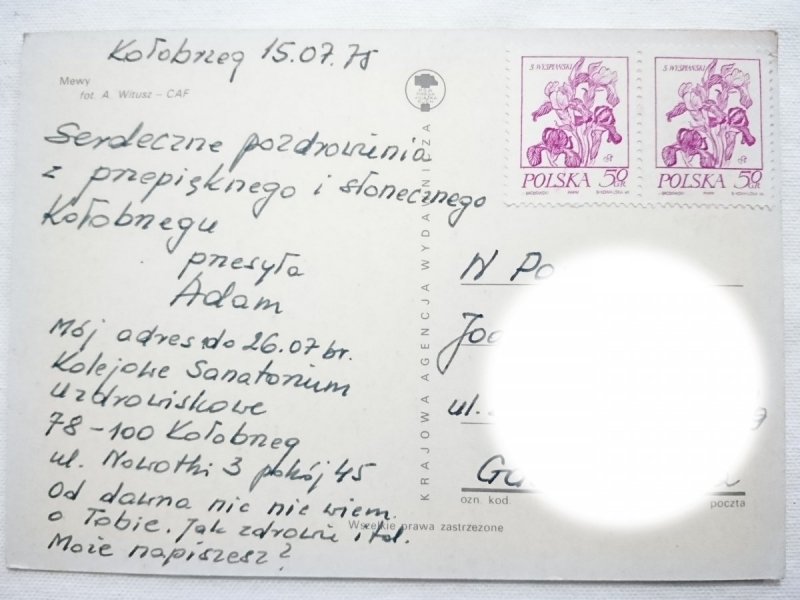 Kołobrzeg 15.07.75
Mewy
fot. A. Witusz – CAF
Serdeczne pozdrowienia
z przepięknego i słonecznego
Kołobrzegu
przesyła
Adam
Mój adres do 26.07 br.
Kolejowe Sanatorium
Uzdrowiskowe
78-100 Kołobrzeg
ul. Nowotki 3 pokój 45
Od dawna nic nie wiem
o Tobie. Jak zdrowie itd.
Może napiszesz?
KRAJOWA AGENCJA WYDAWNICZA
Wszelkie prawa zastrzeżone
S. WYSPIAŃSKI
POLSKA 50 GR
S. WYSPIAŃSKI
POLSKA 50 GR
W
ul.
ozn. kod.
poczta